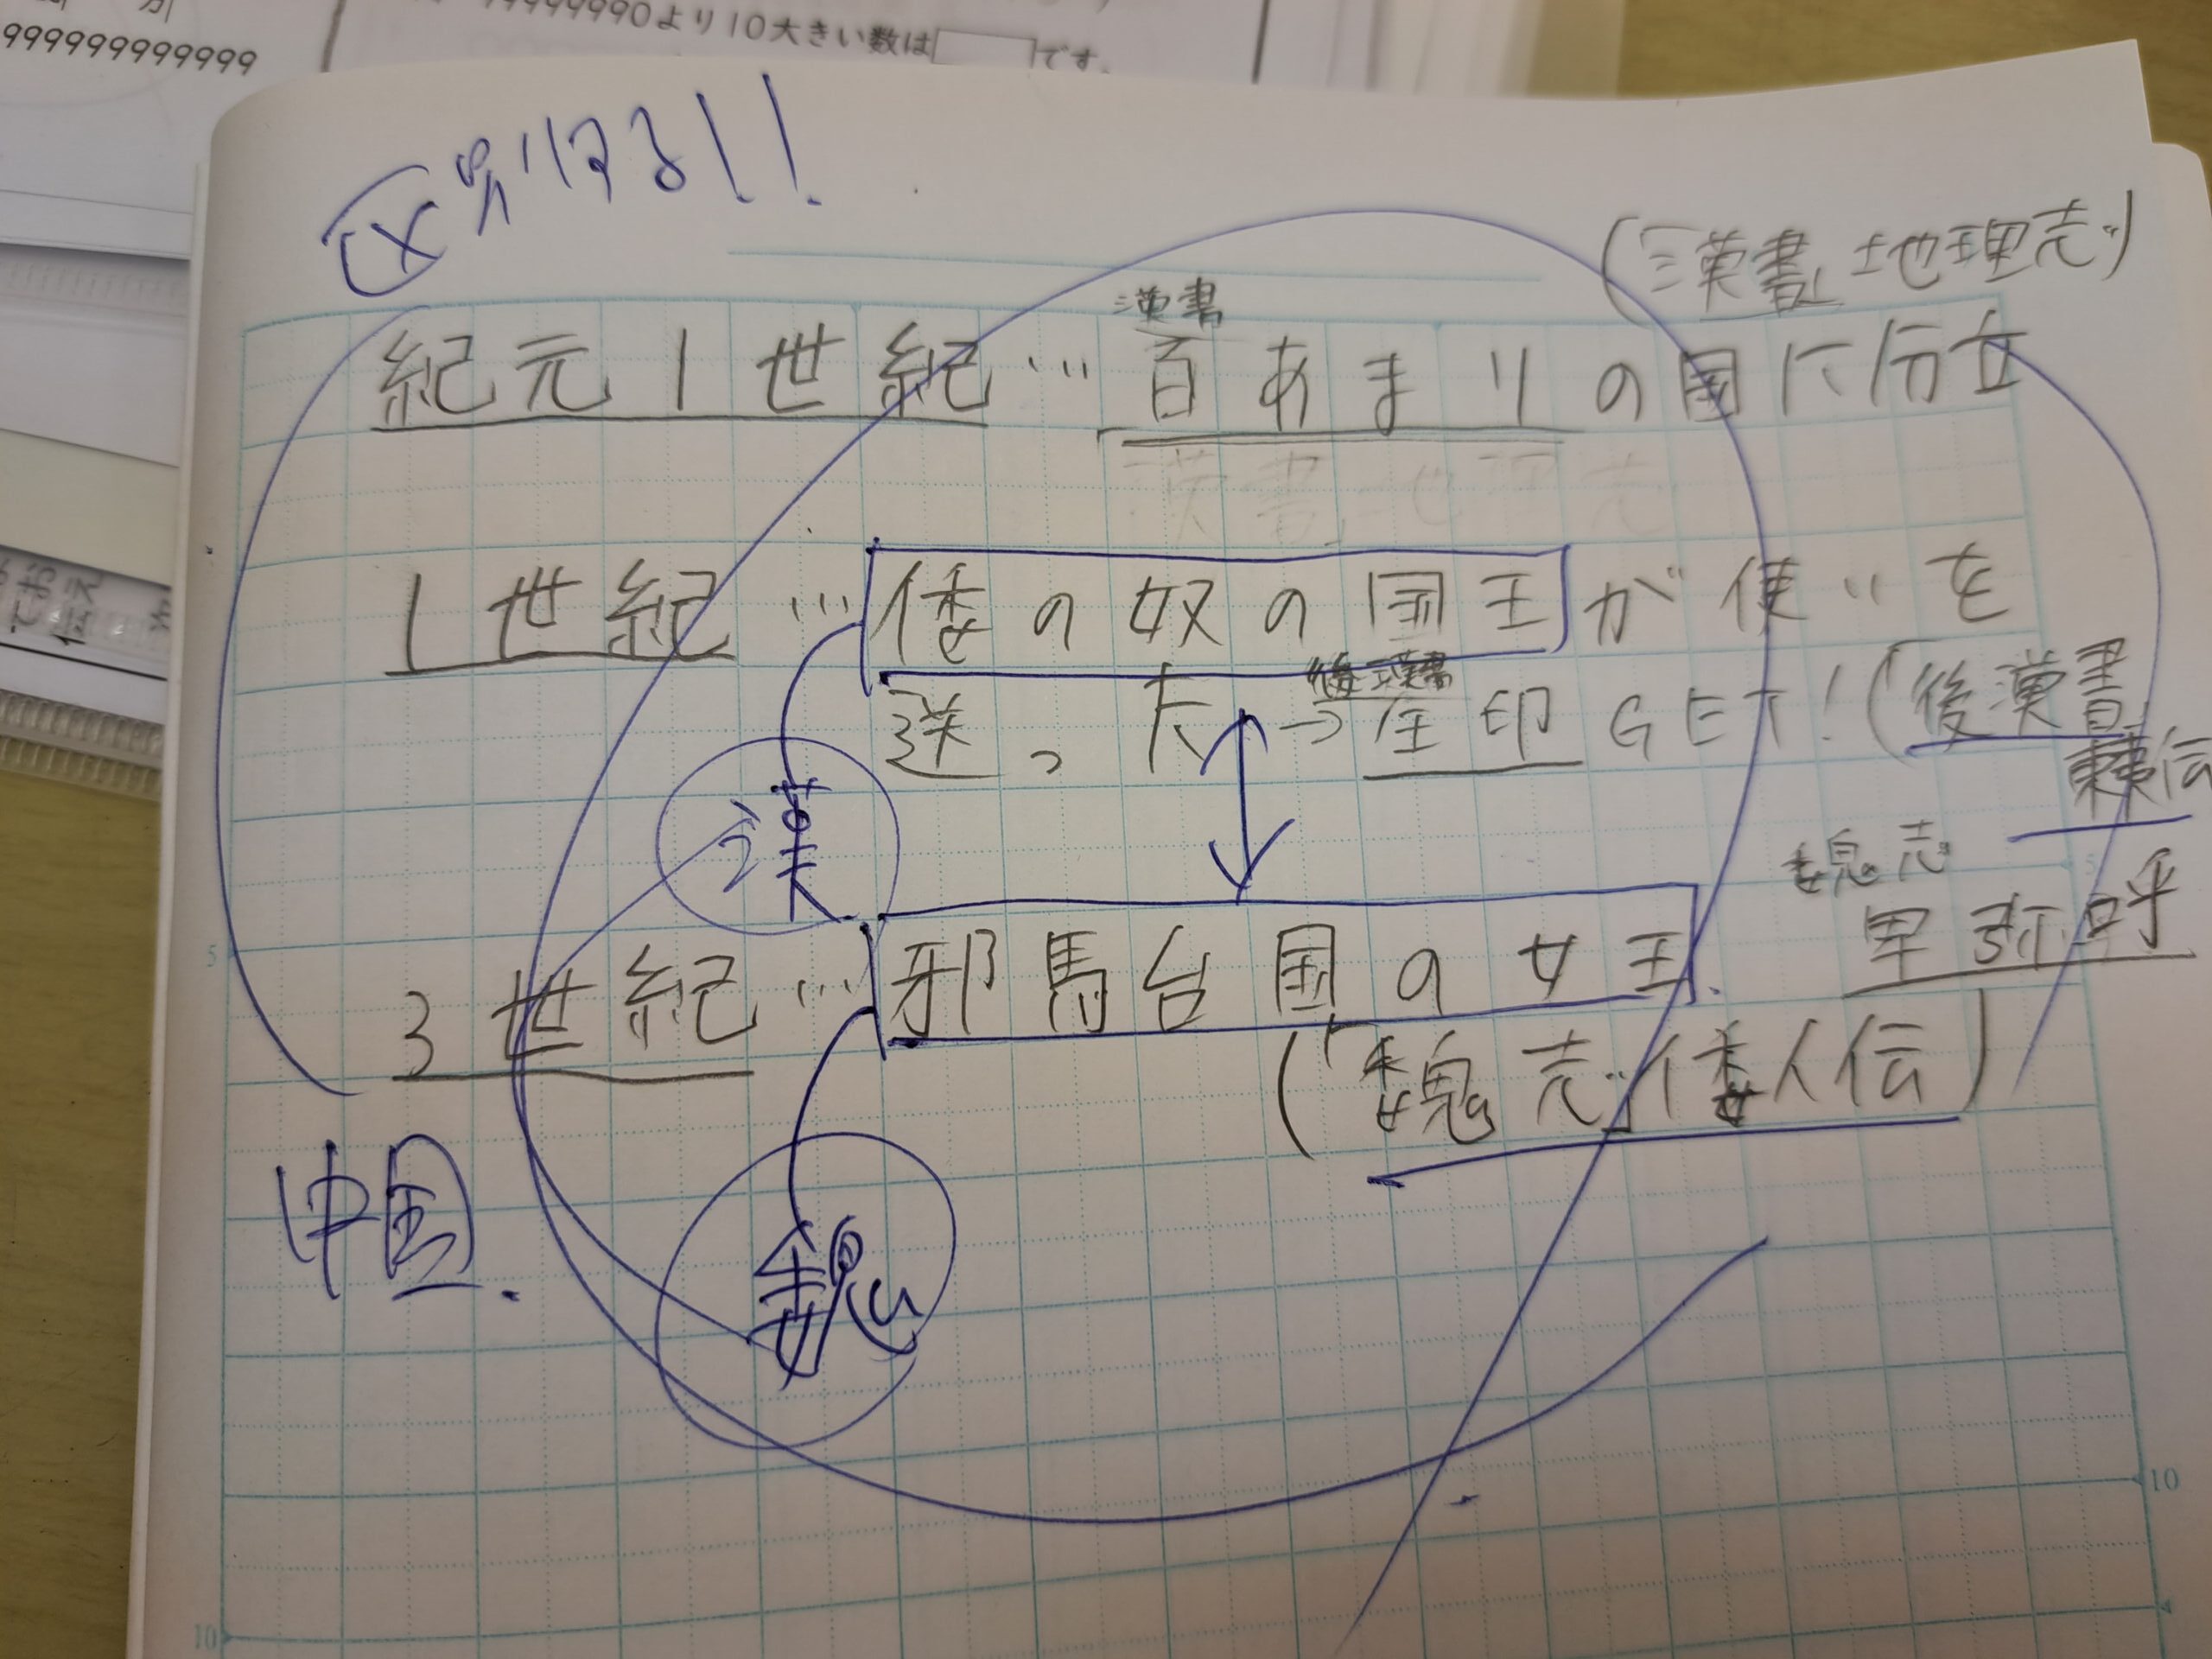 999999999999
99999990より10大きい数は[ ]です。
区別する!!
(「漢書」地理志)
漢書
紀元1世紀…百あまりの国に分立
漢書 地理志
1世紀…倭の奴の国王が使いを
後漢書
送った→金印GET!(「後漢書」
東夷伝
漢
魏志
3世紀…邪馬台国の女王. 卑弥呼
(「魏志」倭人伝)
中国.
魏
5
5
10
10